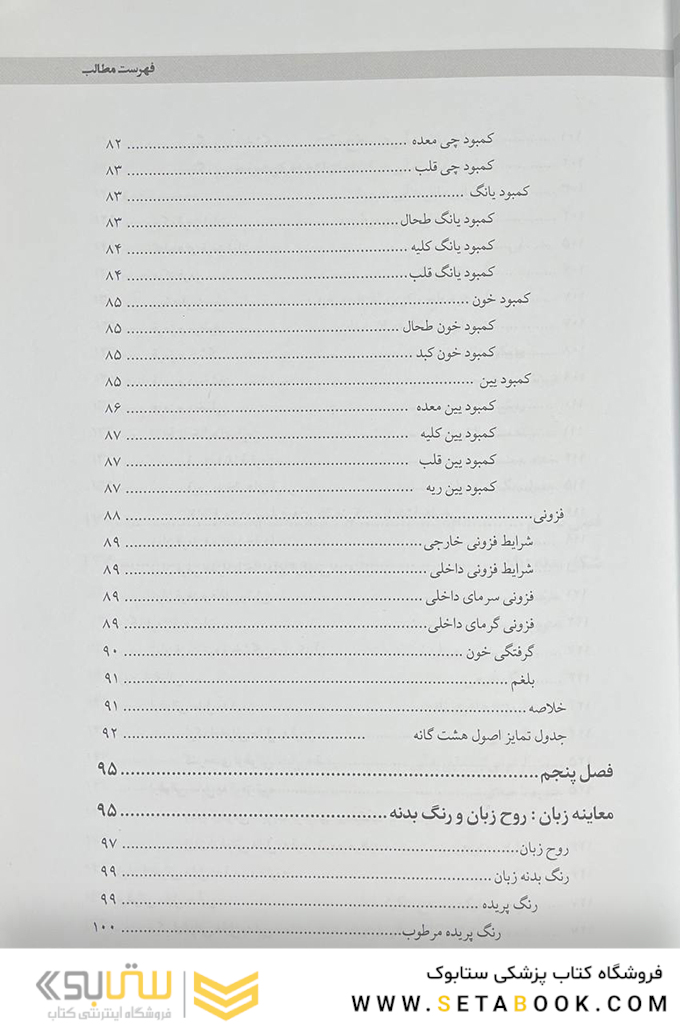 فهرست مطالب
کمبود چی معده ........ ۸۲
کمبود چی قلب ........ ۸۳
کمبود یانگ ........ ۸۳
کمبود یانگ طحال ........ ۸۳
کمبود یانگ کلیه ........ ۸۴
کمبود یانگ قلب ........ ۸۴
کمبود خون ........ ۸۵
کمبود خون طحال ........ ۸۵
کمبود خون کبد ........ ۸۵
کمبود یین ........ ۸۵
کمبود یین معده ........ ۸۶
کمبود یین کلیه ........ ۸۷
کمبود یین قلب ........ ۸۷
کمبود یین ریه ........ ۸۷
فزونی ........ ۸۸
شرایط فزونی خارجی ........ ۸۹
شرایط فزونی داخلی ........ ۸۹
فزونی سرمای داخلی ........ ۸۹
فزونی گرمای داخلی ........ ۸۹
گرفتگی خون ........ ۹۰
بلغم ........ ۹۱
خلاصه ........ ۹۱
جدول تمایز اصول هشت گانه ........ ۹۲
فصل پنجم ........ ۹۵
معاینه زبان : روح زبان و رنگ بدنه ........ ۹۵
روح زبان ........ ۹۷
رنگ بدنه زبان ........ ۹۹
رنگ پریده ........ ۹۹
رنگ پریده مرطوب ........ ۱۰۰
فروشگاه کتاب پزشکی ستابوک
WWW.SETABOOK.COM
ستابوک
فروشگاه اینترنتی کتاب